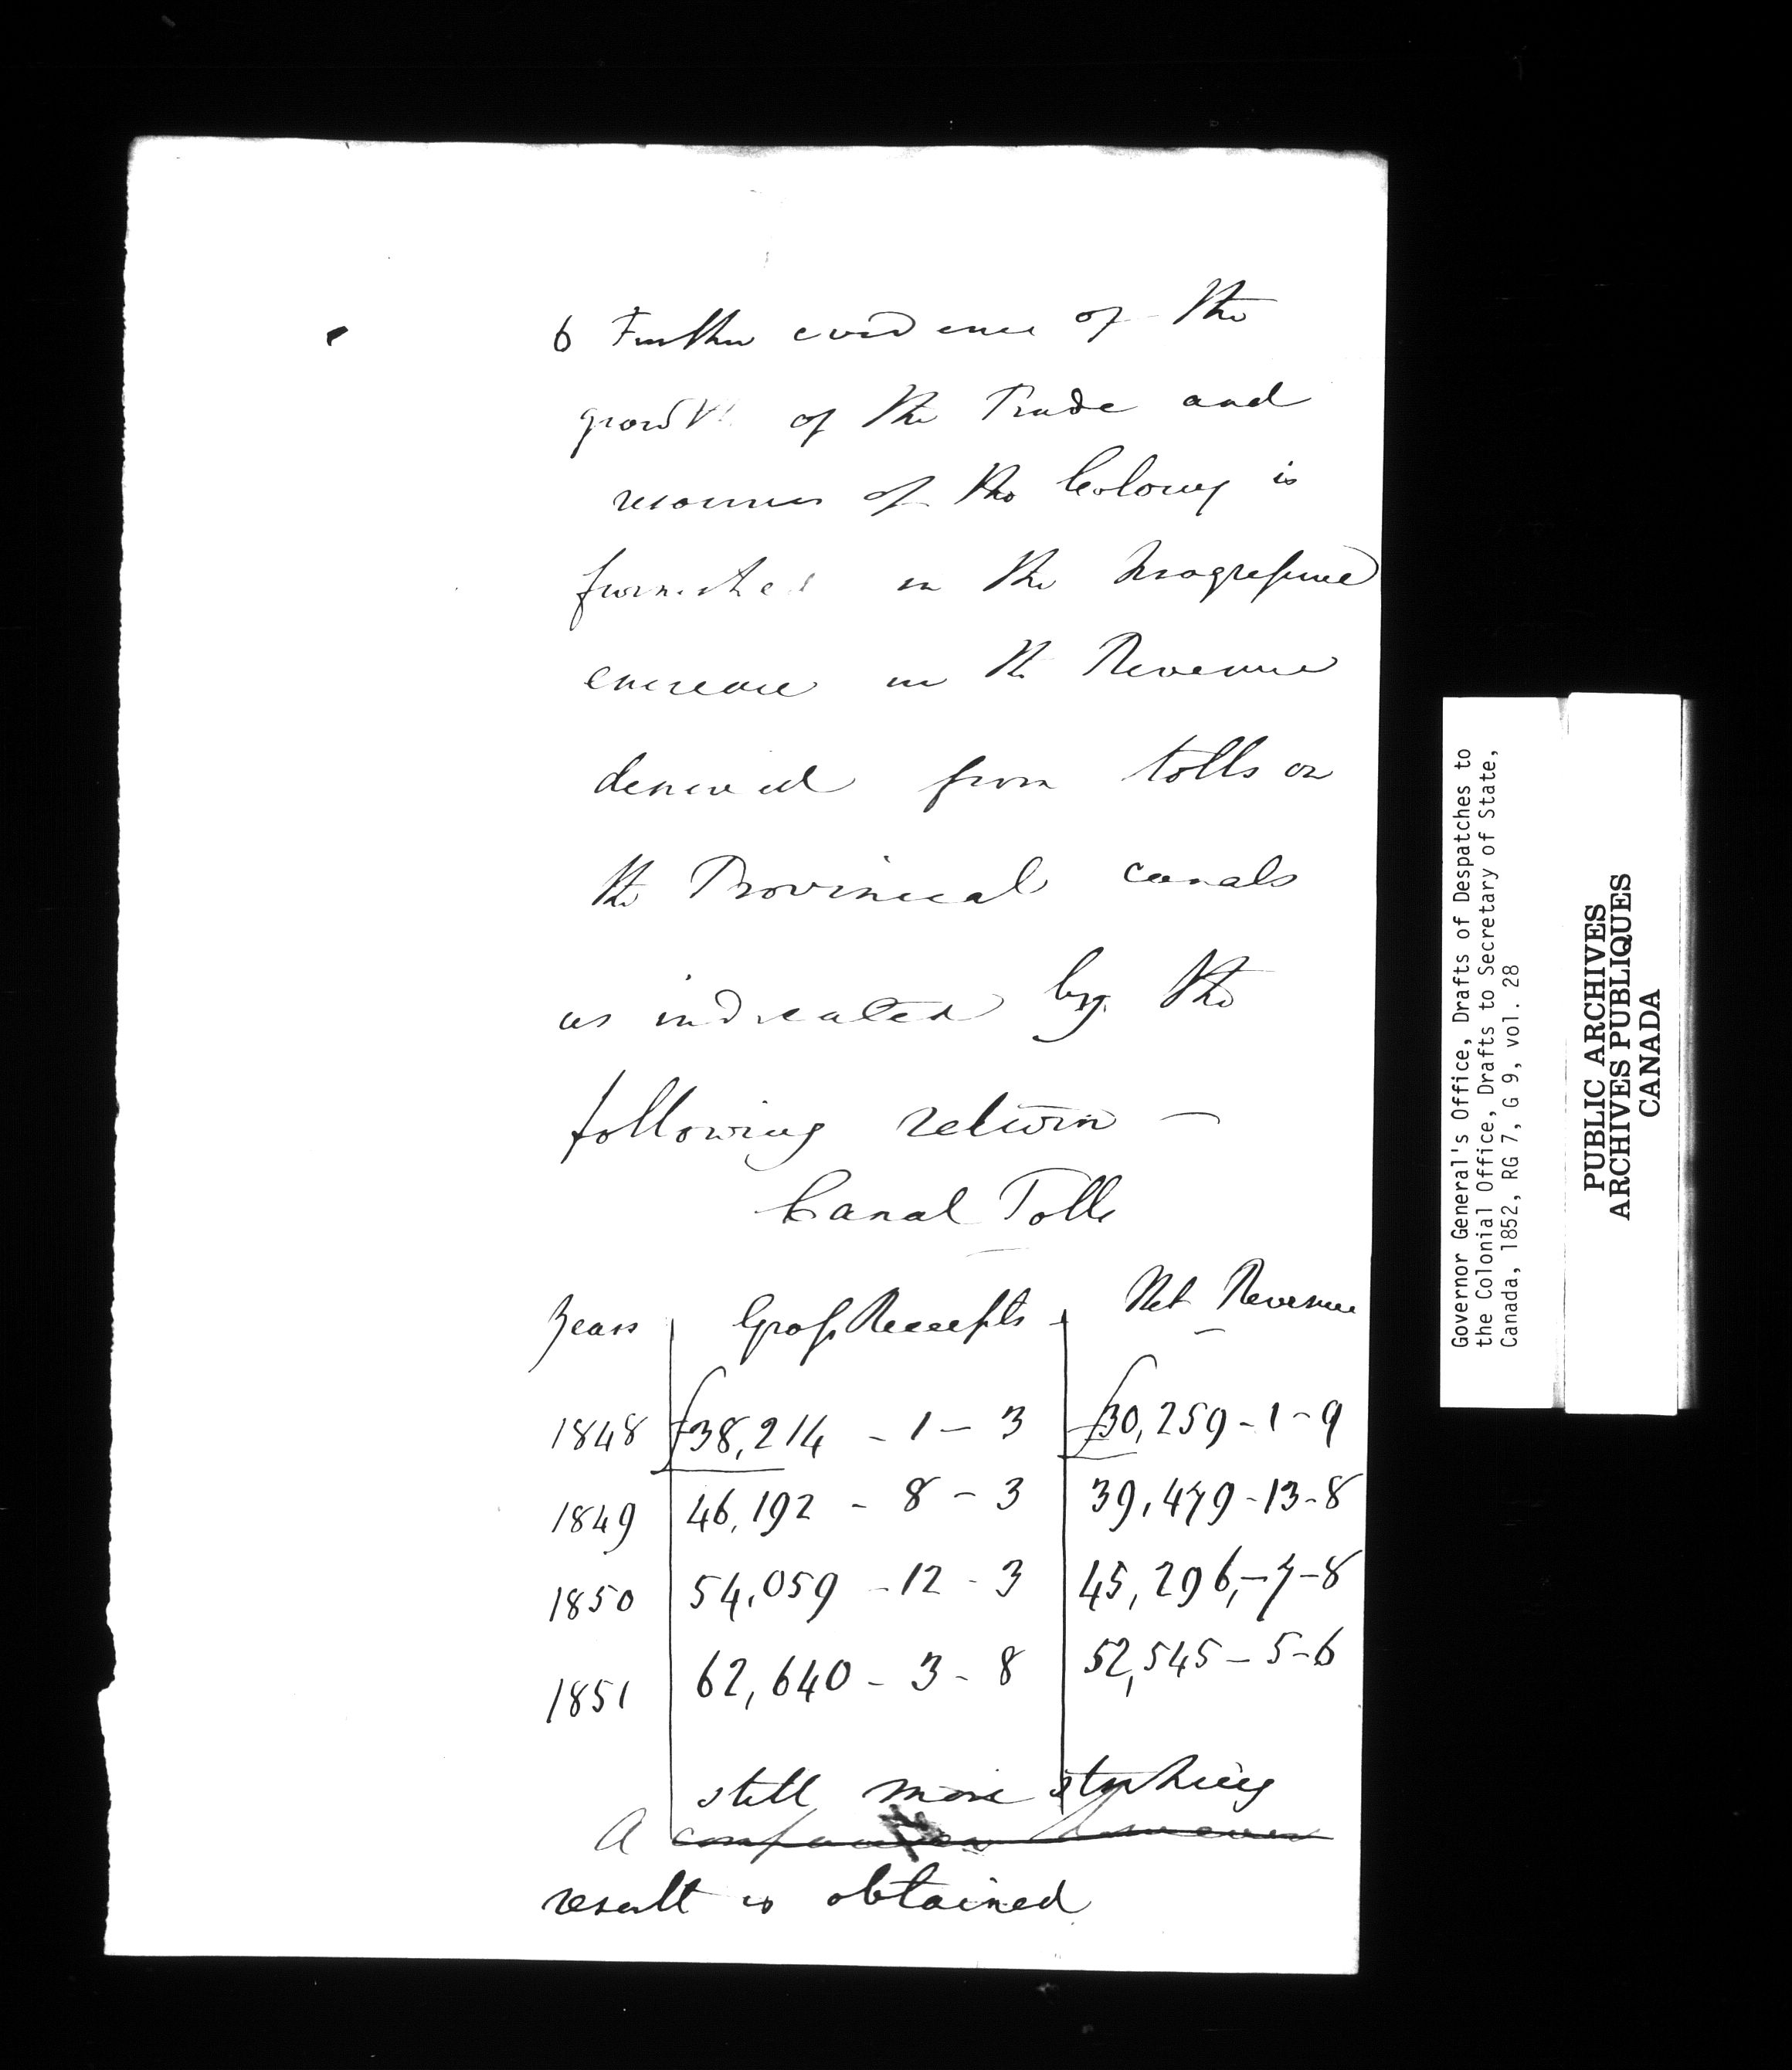 6 Further evidence of the
growth of the Trade and
resources of the Colony is
furnished in the progressive
encrease in the Revenue
derived from tolls on
the Provincial canals
as indicated by the
following return —
Canal Tolls
Years Gross Receipts Net Revenue
1848 £38,214 - 1 - 3 £30,259 - 1 - 9
1849 46,192 - 8 - 3 39,479 - 13 - 8
1850 54,059 - 12 - 3 45,296, - 7 - 8
1851 62,640 - 3 - 8 52,545 - 5 - 6
still more striking
A comparison however
result is obtained
Governor General's Office, Drafts of Despatches to
the Colonial Office, Drafts to Secretary of State,
Canada, 1852, RG 7, G 9, vol. 28
PUBLIC ARCHIVES
ARCHIVES PUBLIQUES
CANADA